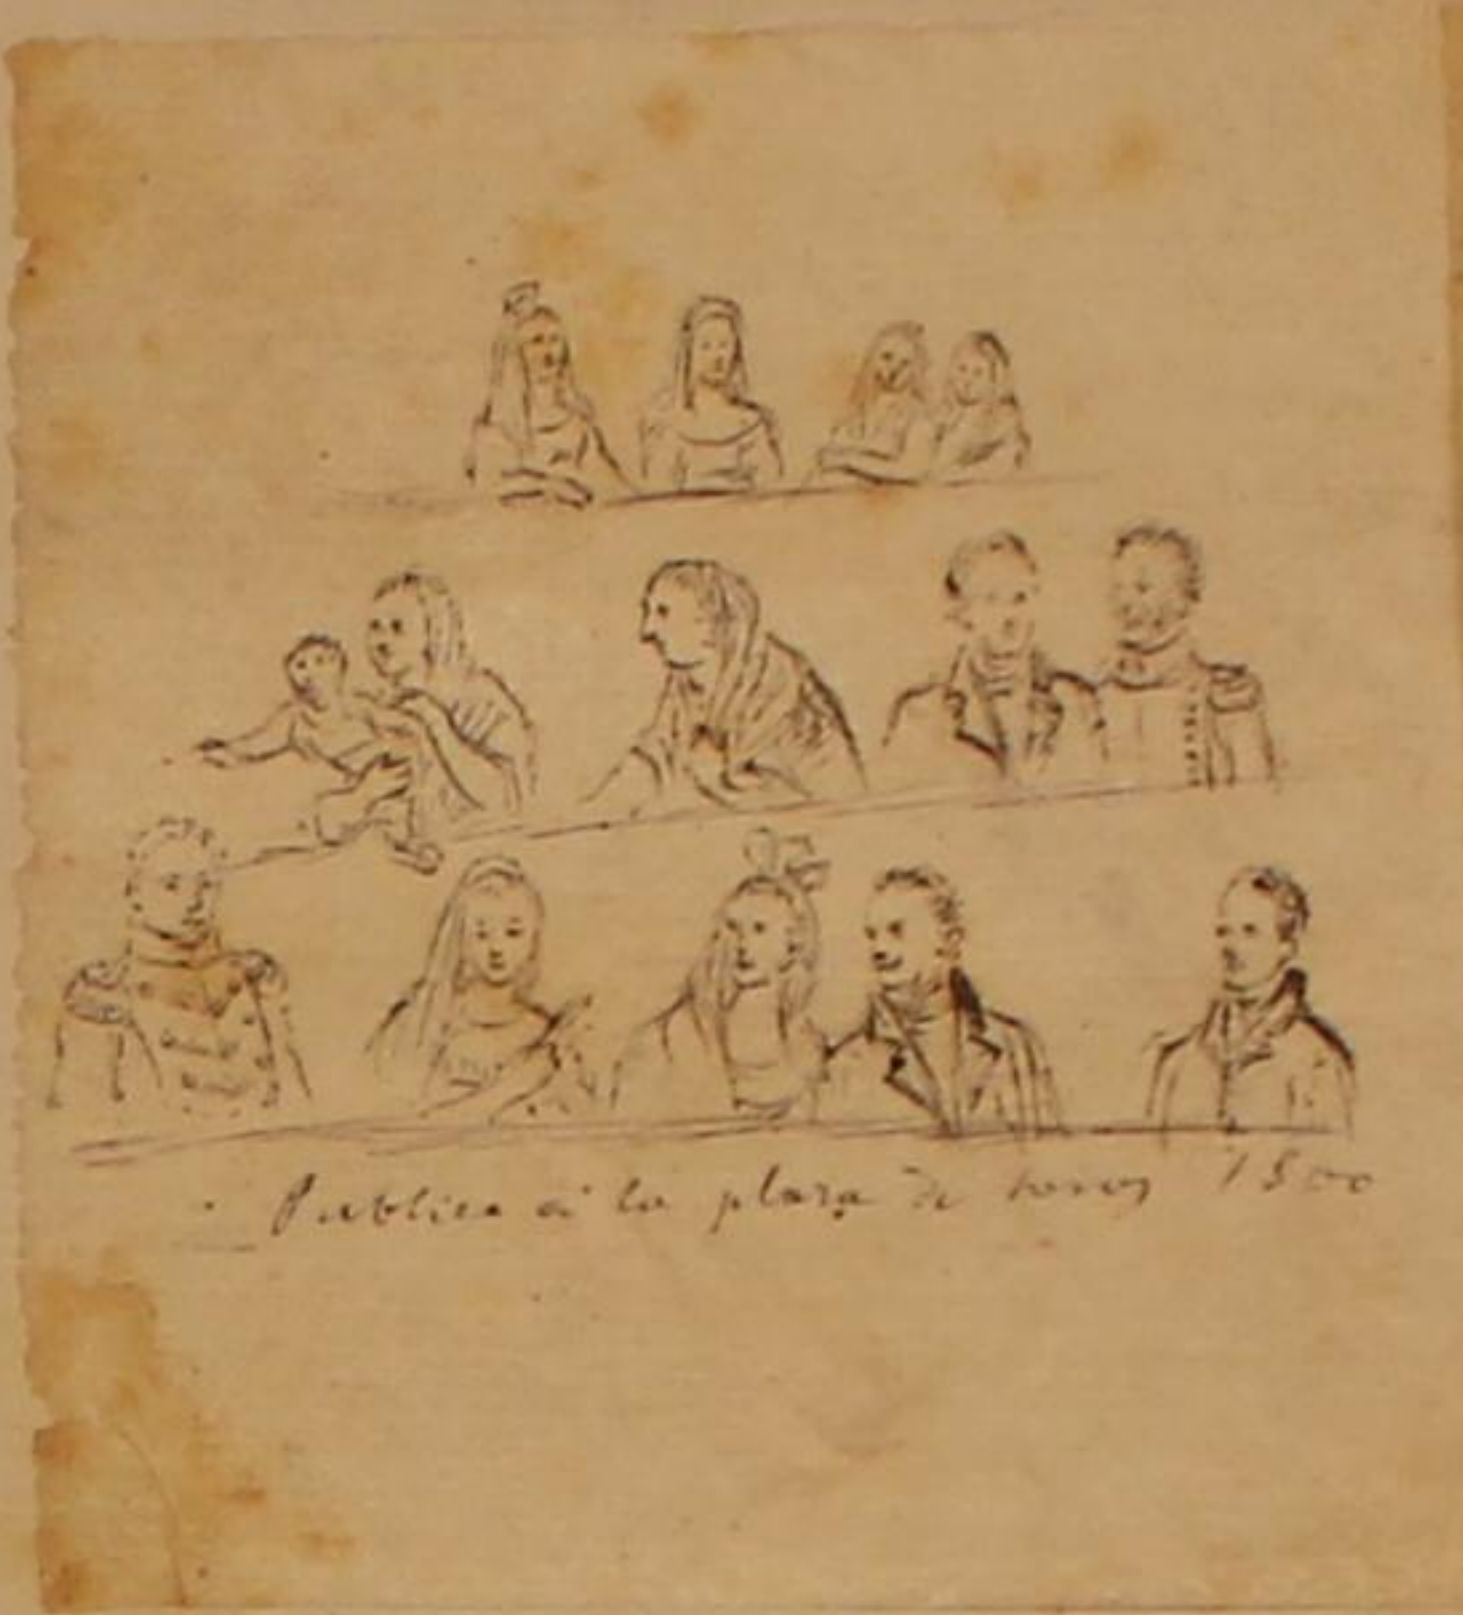 Publico a la plaza de toros 1800